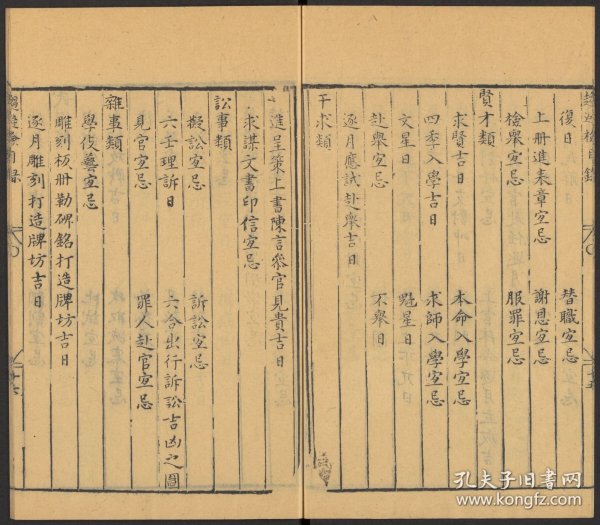 復日 替職宜忌
上冊進表章宜忌 謝恩宜忌
檢舉宜忌 服罪宜忌
賢才類
求賢吉日 本命入學宜忌
四季入學吉日 求師入學宜忌
文星日 魁星日
赴舉宜忌 不舉日
逐月應試赴舉吉日
干求類
進呈策上書陳言參官見貴吉日
求謀文書印信宜忌
訟事類
擬訟宜忌 訴訟宜忌
六壬理訴日 六合出行訴訟吉凶之圖
見官宜忌 罪人赴官宜忌
雜事類
學伎藝宜忌
雕刻板冊勒碑銘打造牌坊吉日
逐月雕刻打造牌坊吉日
孔夫子旧书网
www.kongfz.com